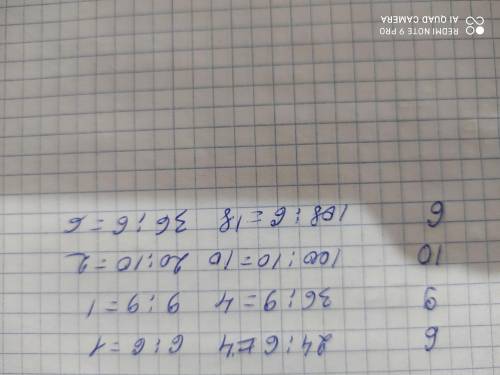 6 24:6=4 6:6=1
9 36:9=4 9:9=1
10 100:10=10 20:10=2
6 108:6=18 36:6=6
REDMI NOTE 9 PRO
AI QUAD CAMERA